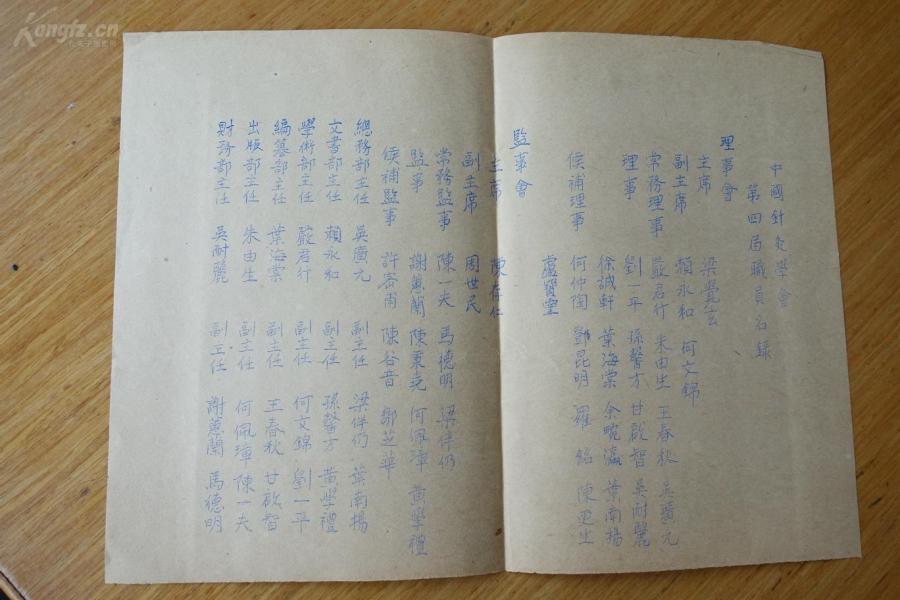 中國針灸學會
第四屆職員名錄
理事會
主席 梁覺玄
副主席 賴永和 何文錦
常務理事 嚴君行 朱由生 王春秋 吳廣元
理事 劉一平 孫馨方 甘啟智 吳耐麗
徐誠軒 葉海棠 余畹瀛 葉南揚
候補理事 何仲陶 鄧昆明 羅銘 陳更生
盧賢堂
監事會
主席 陳存仁
副主席 周世民
常務監事 陳一夫 馬德明 梁伴仍
監事 謝蕙蘭 陳秉堯 何佩璋 黃學禮
候補監事 許密甫 陳谷音 鄒芝華
總務部主任 吳廣元 副主任 梁伴仍 葉南揚
文書部主任 賴永和 副主任 孫馨方 黃學禮
學術部主任 嚴君行 副主任 何文錦 劉一平
編纂部主任 葉海棠 副主任 王春秋 甘啟智
出版部主任 朱由生 副主任 何佩璋 陳一夫
財務部主任 吳耐麗 副主任 謝蕙蘭 馬德明
Kongfz.cn